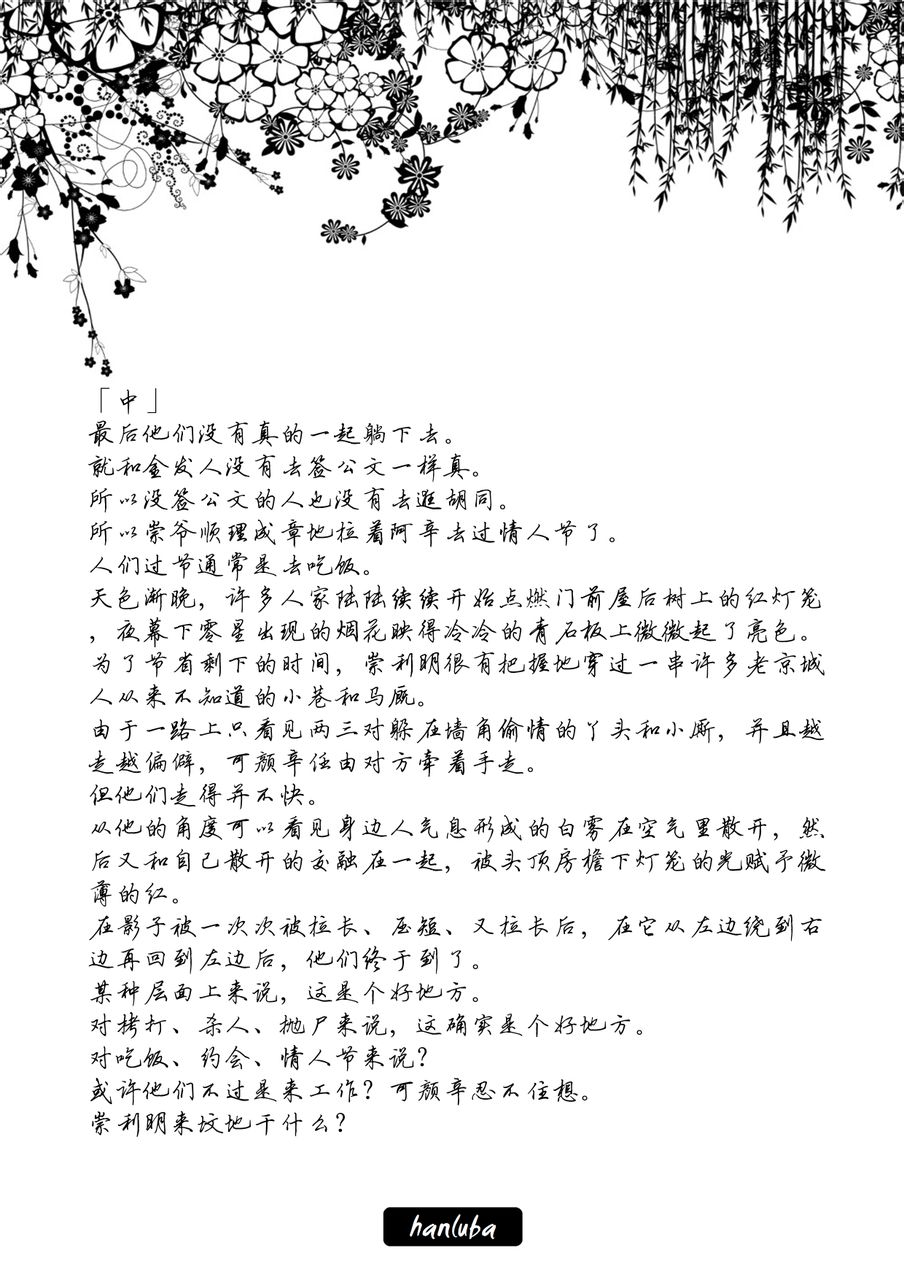 「中」
最后他们没有真的一起躺下去。
就和金发人没有去签公文一样真。
所以没签公文的人也没有去逛胡同。
所以崇爷顺理成章地拉着阿辛去过情人节了。
人们过节通常是去吃饭。
天色渐晚，许多人家陆陆续续开始点燃门前屋后树上的红灯笼
，夜幕下零星出现的烟花映得冷冷的青石板上微微起了亮色。
为了节省剩下的时间，崇利明很有把握地穿过一串许多老京城
人从来不知道的小巷和马厩。
由于一路上只看见两三对躲在墙角偷情的丫头和小厮，并且越
走越偏僻，可颜辛任由对方牵着手走。
但他们走得并不快。
从他的角度可以看见身边人气息形成的白雾在空气里散开，然
后又和自己散开的交融在一起，被头顶房檐下灯笼的光赋予微
薄的红。
在影子被一次次被拉长、压短、又拉长后，在它从左边绕到右
边再回到左边后，他们终于到了。
某种层面上来说，这是个好地方。
对拷打、杀人、抛尸来说，这确实是个好地方。
对吃饭、约会、情人节来说？
或许他们不过是来工作？可颜辛忍不住想。
崇利明来坟地干什么？
hanluba